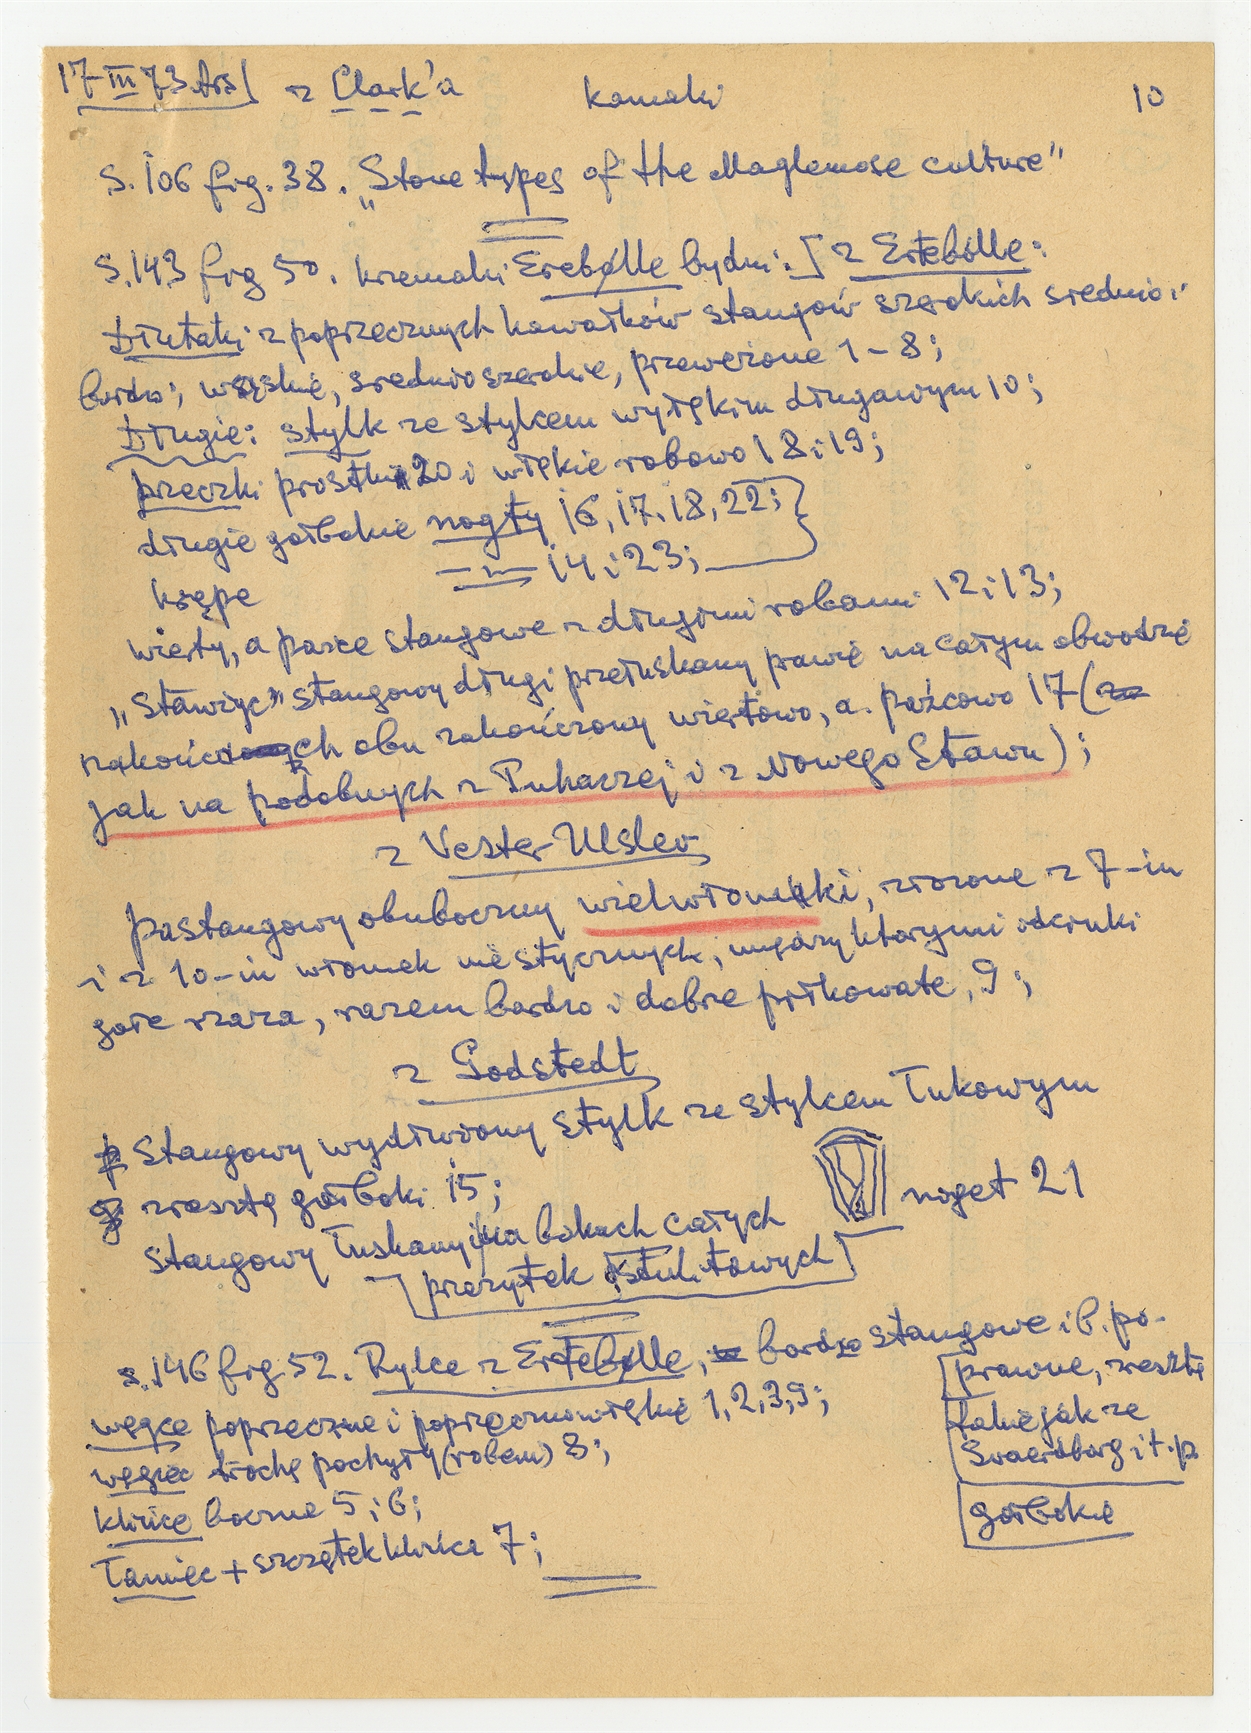 17 III 73 Ars z Clark'a kamaki 10
S. 106 fig. 38. „Stone types of the Maglemose culture"
S. 143 fig 50. krzemaki Erebølle bydni. [z Ertebölle:
Dłutaki z poprzecznych kawałków stangów szerokich średnio i
bardzo; wąskie, średnio szerokie, przewężone 1-8;
Długie: stylk ze stylcem wyłękim długawym 10;
przeczki 20 i włękie robowo 18 i 19;
długie gałbokie nogty 16, 17, 18, 22;
krępe —"— 14 i 23;
wierty, a parce stangowe z długimi robami 12 i 13;
„Stawżyc" stangowy długi przełuskany prawie na całym obwodzie
obu zakończony wiertowo, a. 17 (
jak na podobnych z Puhaczej i z Nowego Stawu);
z Vester-Ulslev
pastangowy obuboczny wielwłomki, złożone z 7-iu
i z 10-iu włomek niestycznych, między którymi odcinki
gołe rzaza, razem bardzo i dobre piłkowate, 9;
z Godstedt
Stangowy wydłużony stylk ze stylcem łukowym
zresztą gałboki 15;
Stangowy łuskany na bokach całych noget 21
przeżytek
s. 146 fig 52. Rylce z Ertebølle, bardzo stangowe i b. po-
prawne, zresztą
takie jak ze
Svaerdborg i t. p.
gałbokie
węgce poprzeczne i 1, 2, 3, 9;
węgiec trochę pochyły (robem) 8;
klińce boczne 5 i 6;
łamiec + szczątek klińca 7;